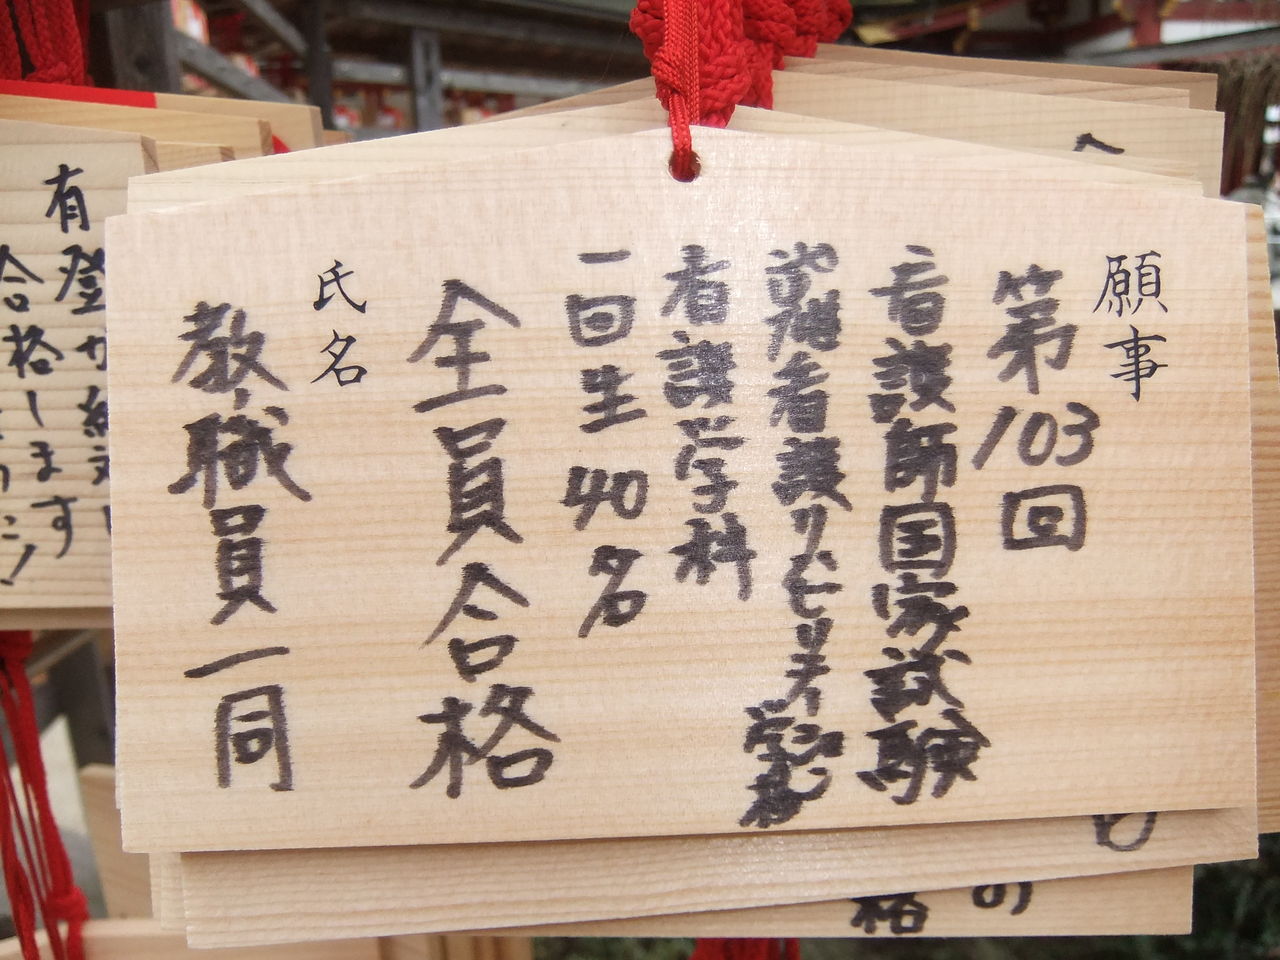 願事
第103回
看護師国家試験
武雄看護リハビリテーション学校
看護学科
一回生 40名
全員合格
氏名
教職員一同
合格します